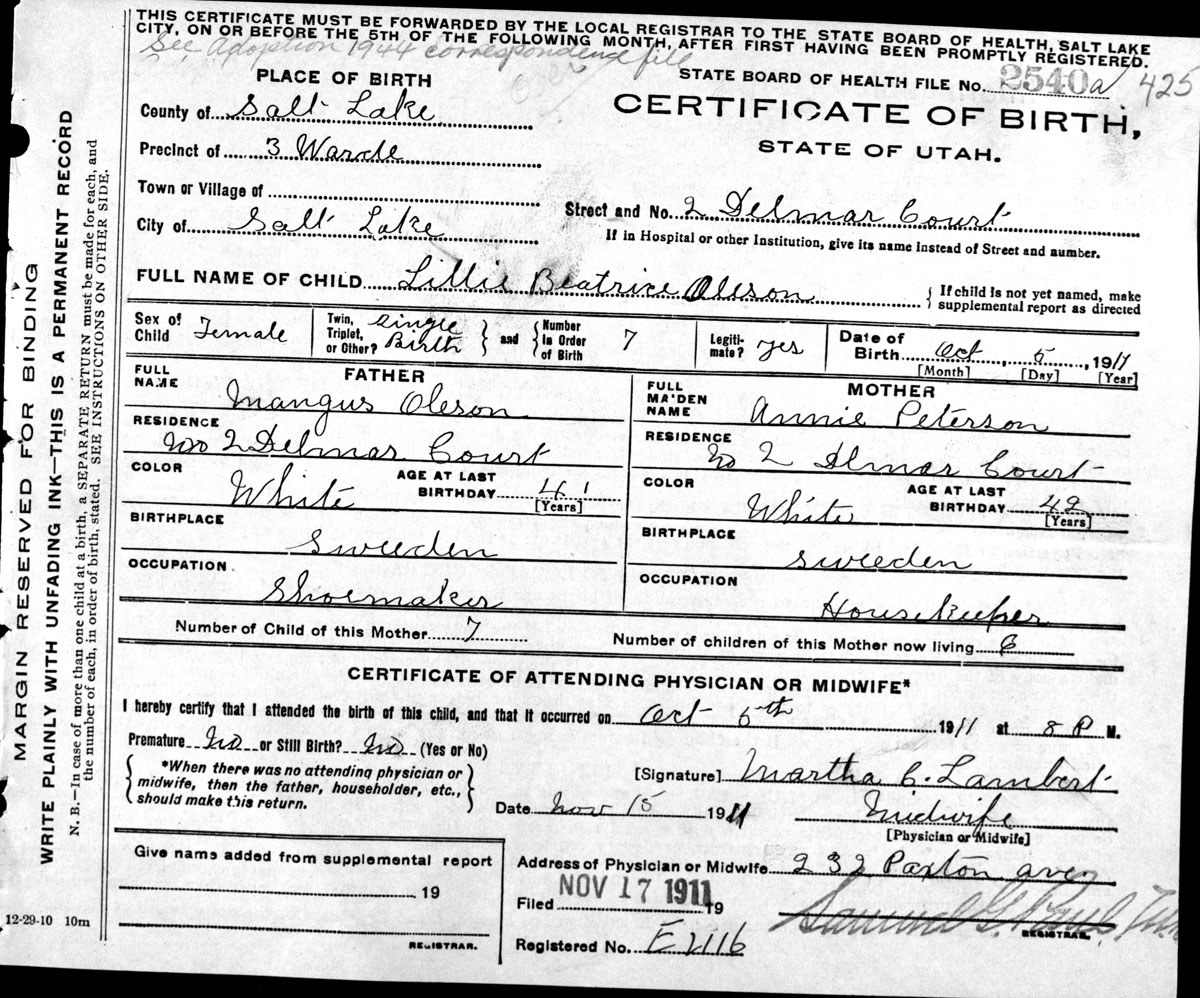 THIS CERTIFICATE MUST BE FORWARDED BY THE LOCAL REGISTRAR TO THE STATE BOARD OF HEALTH, SALT LAKE
CITY, ON OR BEFORE THE 5TH OF THE FOLLOWING MONTH, AFTER FIRST HAVING BEEN PROMPTLY REGISTERED.
See Adoption 1944 correspondence file
over
PLACE OF BIRTH
STATE BOARD OF HEALTH FILE No. 2540a 425
County of Salt Lake
CERTIFICATE OF BIRTH,
STATE OF UTAH.
Precinct of 3 Warde
Town or Village of
Street and No. 2 Delmar Court
City of Salt Lake
If in Hospital or other Institution, give its name instead of Street and number.
FULL NAME OF CHILD Lillie Beatrice Oleson
{ If child is not yet named, make
supplemental report as directed
Sex of Child Female
Twin, Triplet, or Other? single Birth } and { Number in Order of Birth 7
Legiti-mate? yes
Date of Birth Oct 5, 1911
[Month] [Day] [Year]
FATHER
FULL NAME Mangus Oleson
RESIDENCE No 2 Delmar Court
COLOR White AGE AT LAST BIRTHDAY 41
[Years]
BIRTHPLACE Sweeden
OCCUPATION Shoemaker
MOTHER
FULL MAIDEN NAME Annie Peterson
RESIDENCE No 2 Delmar Court
COLOR White AGE AT LAST BIRTHDAY 42
[Years]
BIRTHPLACE Sweeden
OCCUPATION Housekeeper
Number of Child of this Mother 7
Number of children of this Mother now living 6
CERTIFICATE OF ATTENDING PHYSICIAN OR MIDWIFE*
I hereby certify that I attended the birth of this child, and that it occurred on Oct 5th 1911 at 8 P M.
Premature No or Still Birth? No (Yes or No)
{ *When there was no attending physician or
midwife, then the father, householder, etc.,
should make this return. }
[Signature] Martha C. Lambert
Date Nov 15 1911 Midwife
[Physician or Midwife]
Give name added from supplemental report
19
REGISTRAR.
Address of Physician or Midwife 232 Paxton ave
Filed NOV 17 1911 19
Samuel G. Paul
REGISTRAR.
Registered No. E2116
12-29-10 10m
MARGIN RESERVED FOR BINDING
WRITE PLAINLY WITH UNFADING INK—THIS IS A PERMANENT RECORD
N. B.—In case of more than one child at a birth, a SEPARATE RETURN must be made for each, and
the number of each, in order of birth, stated. SEE INSTRUCTIONS ON OTHER SIDE.